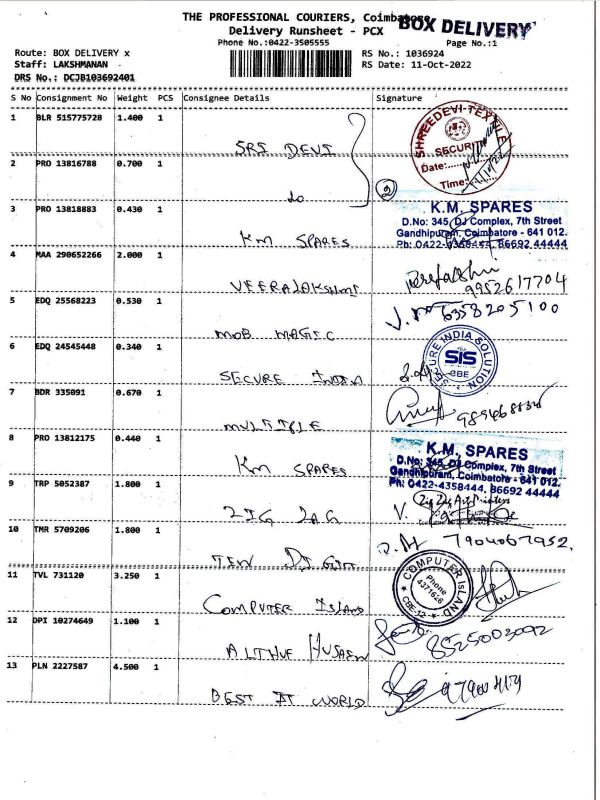 THE PROFESSIONAL COURIERS, Coimbatore
BOX DELIVERY
Delivery Runsheet - PCX
Phone No.:0422-3505555
Page No.:1
Route: BOX DELIVERY x
RS No.: 1036924
Staff: LAKSHMANAN
RS Date: 11-Oct-2022
DRS No.: DCJB103692401
S No Consignment No Weight PCS Consignee Details Signature
1 BLR 515775728 1.400 1
SRI DEVI
SHREEDEVI TEXTILE
SECURITY
Date:
Time:
2 PRO 13816788 0.700 1
do
2
3 PRO 13818883 0.430 1
KM SPARES
K.M. SPARES
D.No: 345, DJ Complex, 7th Street
Gandhipuram, Coimbatore - 641 012.
Ph: 0422-4358444, 86692 44444
4 MAA 290652266 2.000 1
VEERALAKSHMI
9952617704
5 EDQ 25568223 0.530 1
MOB MAGIC
6358205100
6 EDQ 24545448 0.340 1
SECURE INDIA
SECURE INDIA SOLUTION
SIS
CBE
7 BDR 335091 0.670 1
MULTIPLE
8 PRO 13812175 0.440 1
KM SPARES
K.M. SPARES
D.No: 345, DJ Complex, 7th Street
Gandhipuram, Coimbatore - 641 012.
Ph: 0422-4358444, 86692 44444
9 TRP 5052387 1.800 1
ZIG ZAG
Zig Zag Art Printers
10 TMR 5709206 1.800 1
7904067952.
11 TVL 731120 3.250 1
COMPUTER ISLAND
COMPUTER ISLAND
Phone
4371626
CBE-12
12 DPI 10274649 1.100 1
8525003092
13 PLN 2227587 4.500 1
BEST IT WORLD